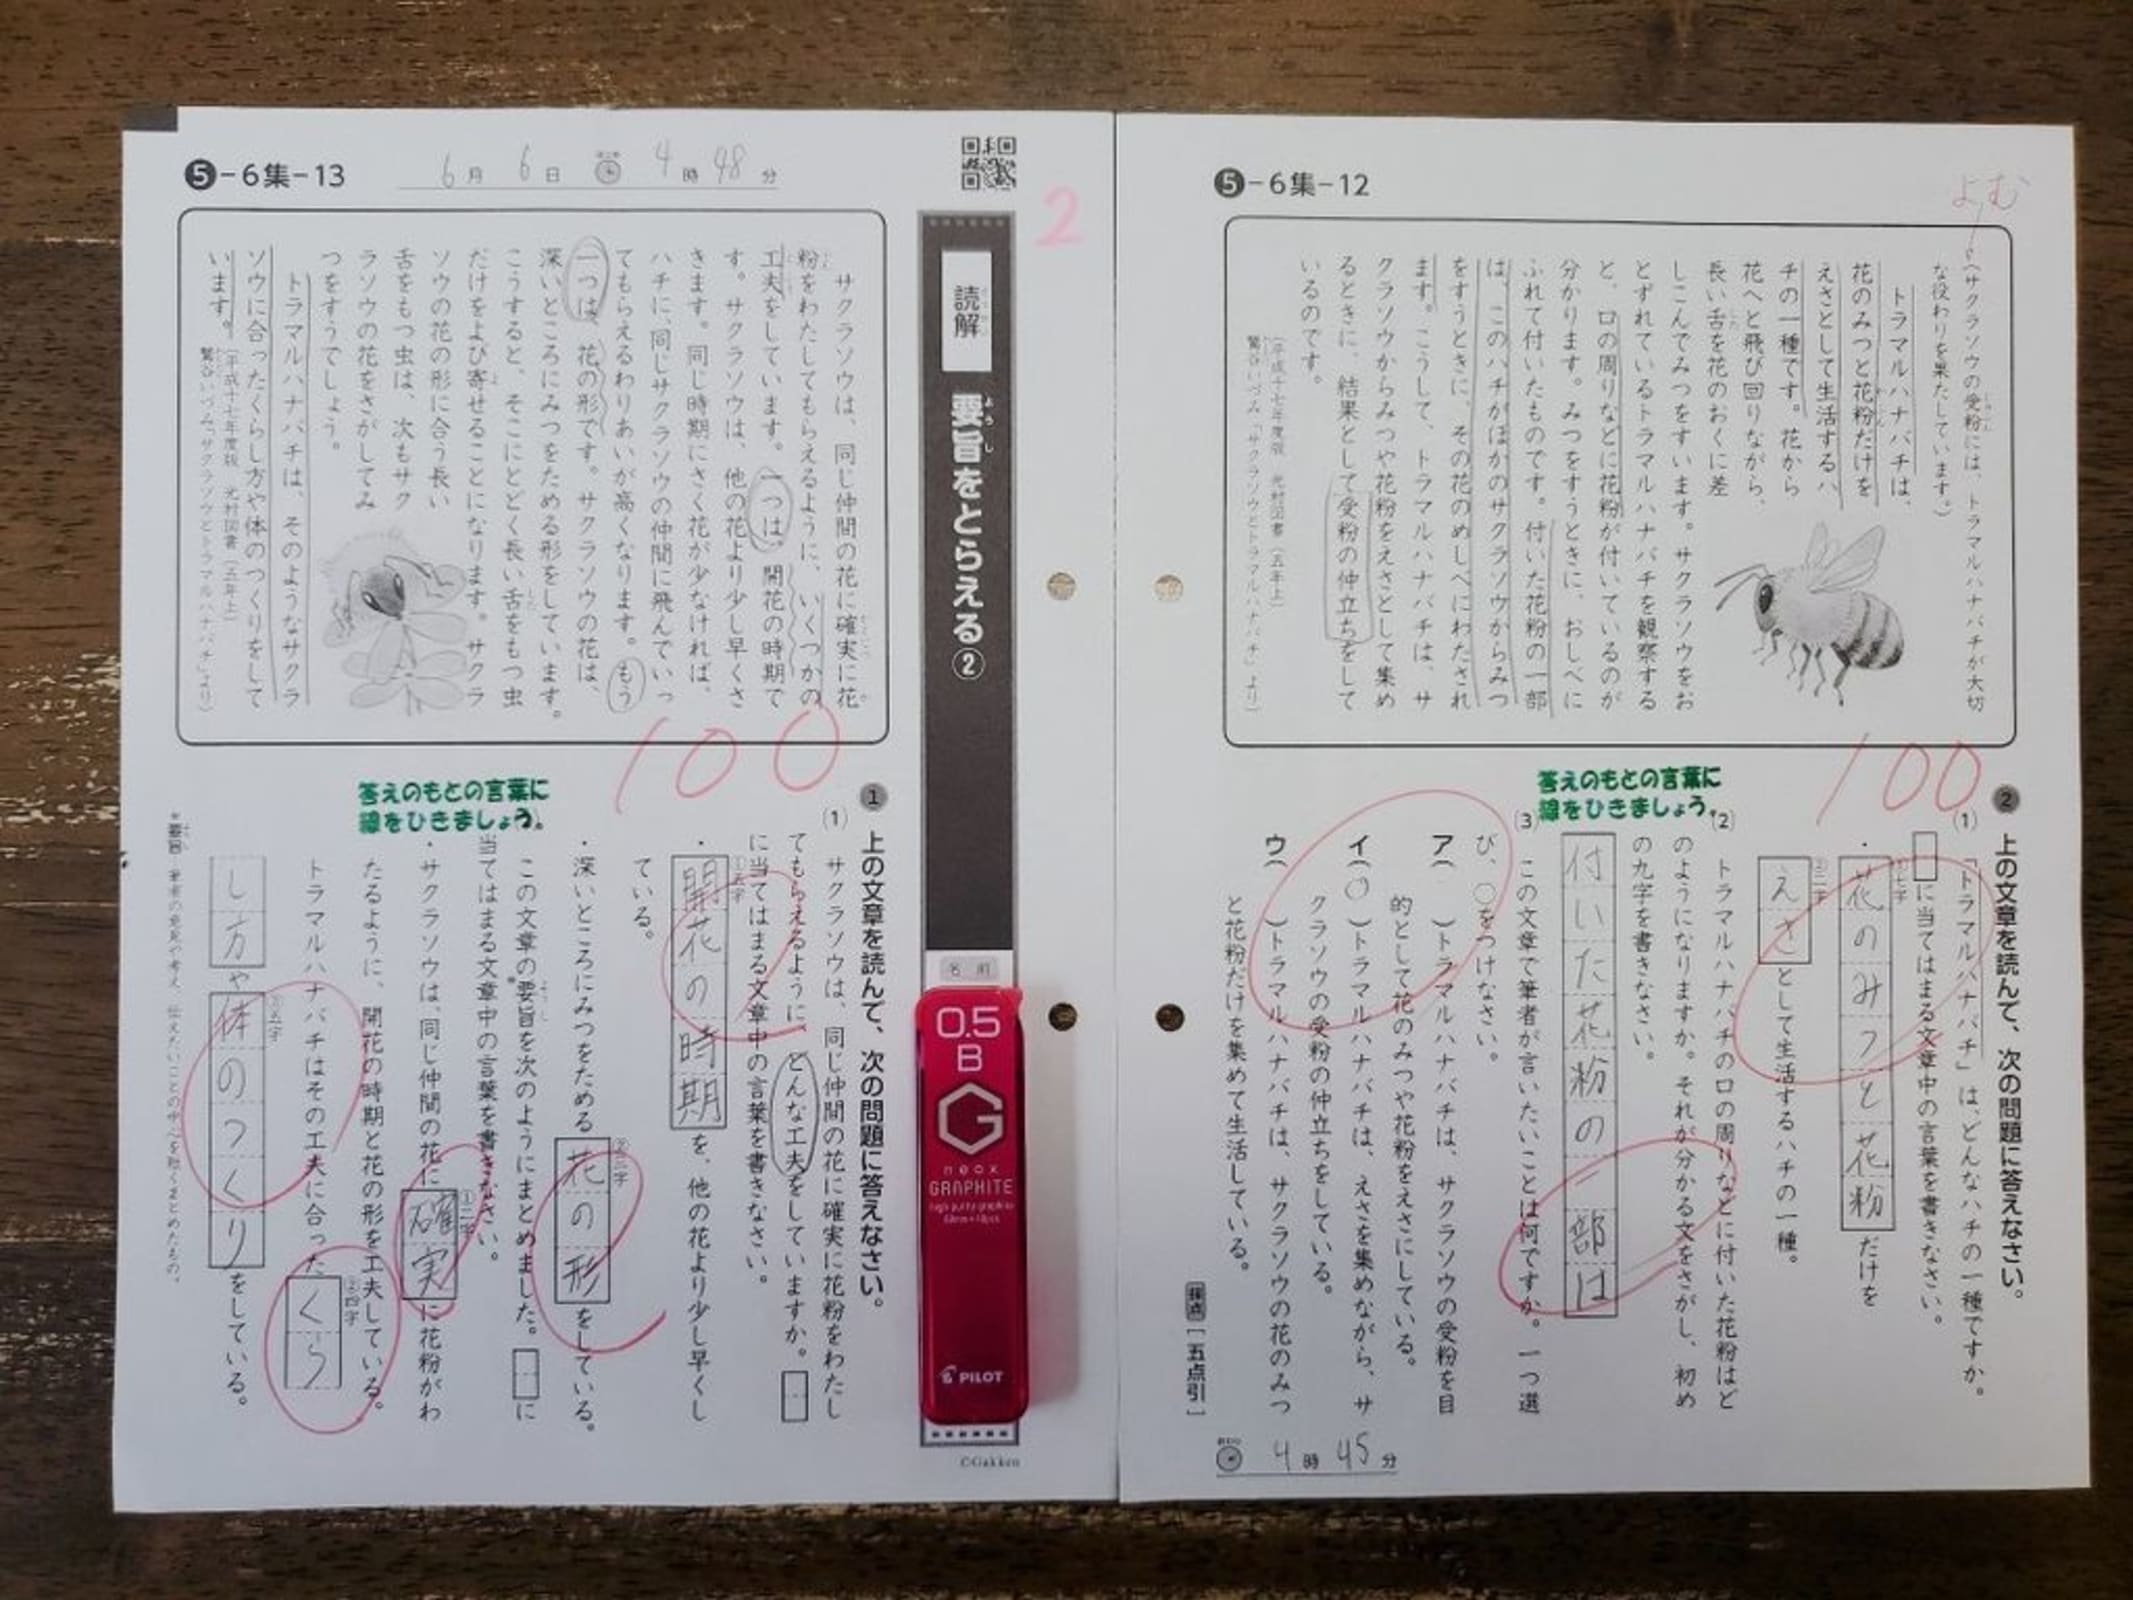 5-6集-13
6月6日 4時48分
2
読解
要旨をとらえる②
名前
サクラソウは、同じ仲間の花に確実に花
粉をわたしてもらえるように、いくつかの
工夫をしています。一つは、開花の時期で
す。サクラソウは、他の花より少し早くさ
きます。同じ時期にさく花が少なければ、
ハチに、同じサクラソウの仲間に飛んでいっ
てもらえるわりあいが高くなります。もう
一つは、花の形です。サクラソウの花は、
深いところにみつをためる形をしています。
こうすると、そこにとどく長い舌をもつ虫
だけをよび寄せることになります。サクラ
ソウの花の形に合う長い
舌をもつ虫は、次もサク
ラソウの花をさがしてみ
つをすうでしょう。
トラマルハナバチは、そのようなサクラ
ソウに合ったくらし方や体のつくりをして
います。
(平成十七年度版 光村図書(五年上)
鷲谷いづみ「サクラソウとトラマルハナバチ」より)
100
答えのもとの言葉に
線をひきましょう。
1 上の文章を読んで、次の問題に答えなさい。
(1) サクラソウは、同じ仲間の花に確実に花粉をわたし
てもらえるように、どんな工夫をしていますか。□
に当てはまる文章中の言葉を書きなさい。
①五字
・開花の時期を、他の花より少し早くし
ている。
②三字
・深いところにみつをためる花の形をしている。
この文章の*要旨を次のようにまとめました。□に
当てはまる文章中の言葉を書きなさい。
①二字
・サクラソウは、同じ仲間の花に確実に花粉がわ
たるように、開花の時期と花の形を工夫している。
②四字
トラマルハナバチはその工夫に合ったくら
③五字
し方や体のつくりをしている。
*要旨 筆者の意見や考え、伝えたいことの中心を短くまとめたもの。
0.5
B
G
neox
GRAPHITE
PILOT
©Gakken
5-6集-12
よむ
(サクラソウの受粉には、トラマルハナバチが大切
な役わりを果たしています。)
トラマルハナバチは、
花のみつと花粉だけを
えさとして生活するハ
チの一種です。花から
花へと飛び回りながら、
長い舌を花のおくに差
しこんでみつをすいます。サクラソウをお
とずれているトラマルハナバチを観察する
と、口の周りなどに花粉が付いているのが
分かります。みつをすうときに、おしべに
ふれて付いたものです。付いた花粉の一部
は、このハチがほかのサクラソウからみつ
をすうときに、その花のめしべにわたされ
ます。こうして、トラマルハナバチは、サ
クラソウからみつや花粉をえさとして集め
るときに、結果として受粉の仲立ちをして
いるのです。
(平成十七年度版 光村図書(五年上)
鷲谷いづみ「サクラソウとトラマルハナバチ」より)
100
答えのもとの言葉に
線をひきましょう。
2 上の文章を読んで、次の問題に答えなさい。
(1) 「トラマルハナバチ」は、どんなハチの一種ですか。
□に当てはまる文章中の言葉を書きなさい。
①七字
・花のみつと花粉だけを
②二字
えさとして生活するハチの一種。
(2) トラマルハナバチの口の周りなどに付いた花粉はど
のようになりますか。それが分かる文をさがし、初め
の九字を書きなさい。
付いた花粉の一部は
(3) この文章で筆者が言いたいことは何ですか。一つ選
び、○をつけなさい。
ア( )トラマルハナバチは、サクラソウの受粉を目
的として花のみつや花粉をえさにしている。
イ(○)トラマルハナバチは、えさを集めながら、サ
クラソウの受粉の仲立ちをしている。
ウ( )トラマルハナバチは、サクラソウの花のみつ
と花粉だけを集めて生活している。
採点[五点引]
4時45分